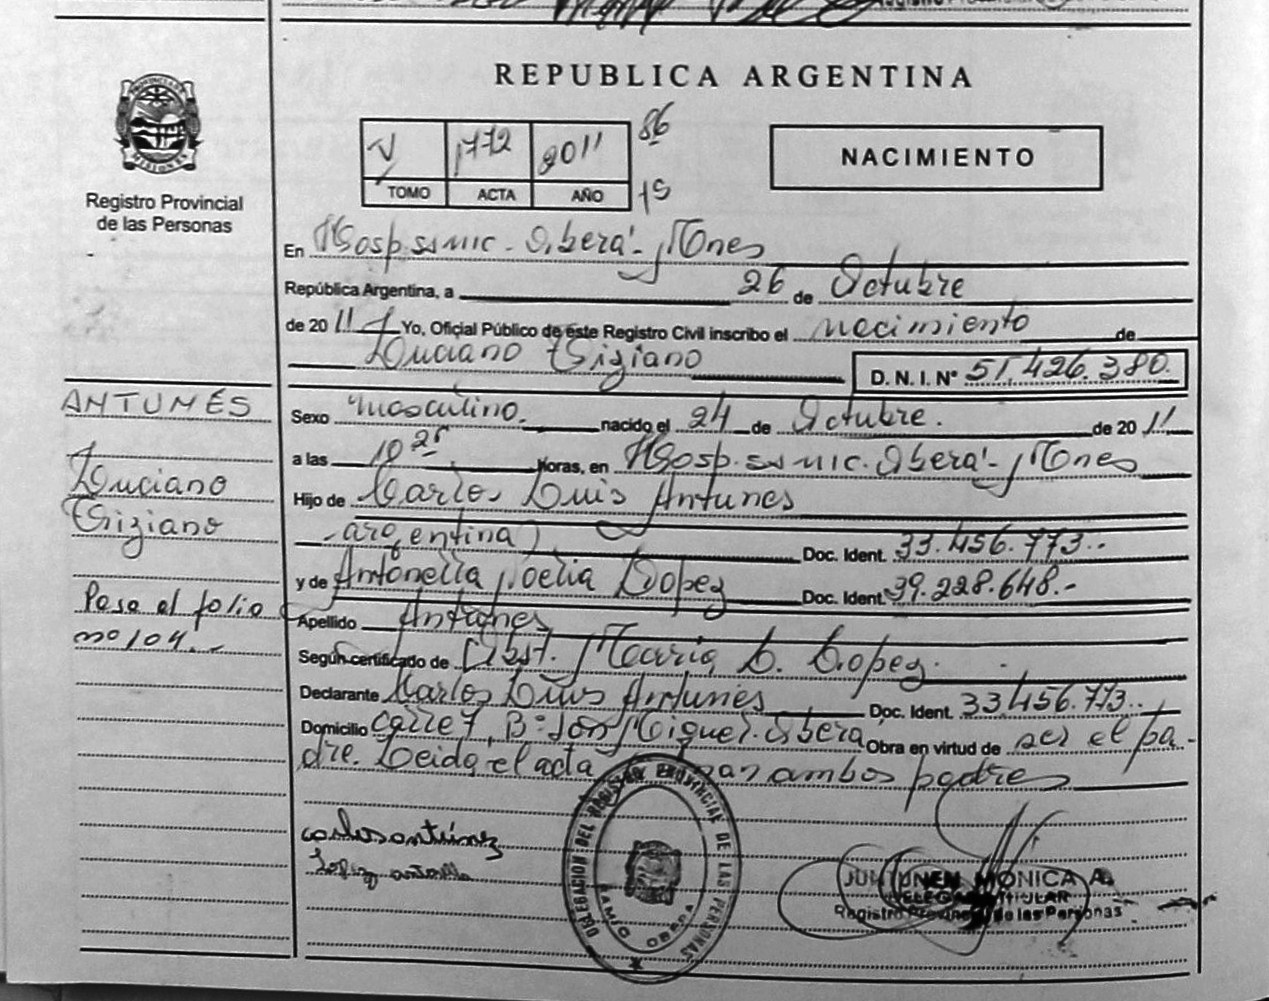 REPUBLICA ARGENTINA
PROVINCIA DE MISIONES
Registro Provincial
de las Personas
V 1772 2011 86
TOMO ACTA AÑO 75
NACIMIENTO
En Hosp. ssmic - Oberá - Mnes
República Argentina, a 26 de Octubre
de 2011 Yo, Oficial Público de este Registro Civil inscribo el nacimiento de
Luciano Tiziano D. N. I. Nº 51.426.380.
ANTUNES
Luciano
Tiziano
Pasa al folio
nº 104.-
Sexo masculino. nacido el 24 de Octubre. de 2011
a las 10 25 horas, en Hosp. ssmic. Oberá - Mnes
Hijo de Carlos Luis Antunes
argentina Doc. Ident. 33.456.773.-
y de Antonella Noelia Lopez Doc. Ident. 39.228.648.-
Apellido Antunes
Según certificado de Obst. Maria L. Lopez.
Declarante Carlos Luis Antunes Doc. Ident. 33.456.773..
Domicilio calle 7, Bº San Miguel. Oberá Obra en virtud de ser el pa-
dre. Leida el acta ambos padres
carlos antunez
Lopez antonella
DELEGACION DEL REGISTRO PROVINCIAL DE LAS PERSONAS
RAMÓN OBERA
JUNTUNEN MONICA A.
DELEGADA TITULAR
Registro Provincial de las Personas